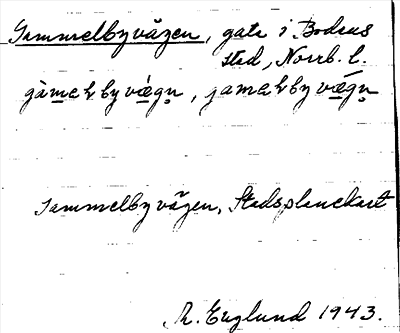 Gammelbyvägen, gata i Bodens
stad, Norrb. l.
Gammelbyvägen, Stadsplanekart
R. Englund 1943.